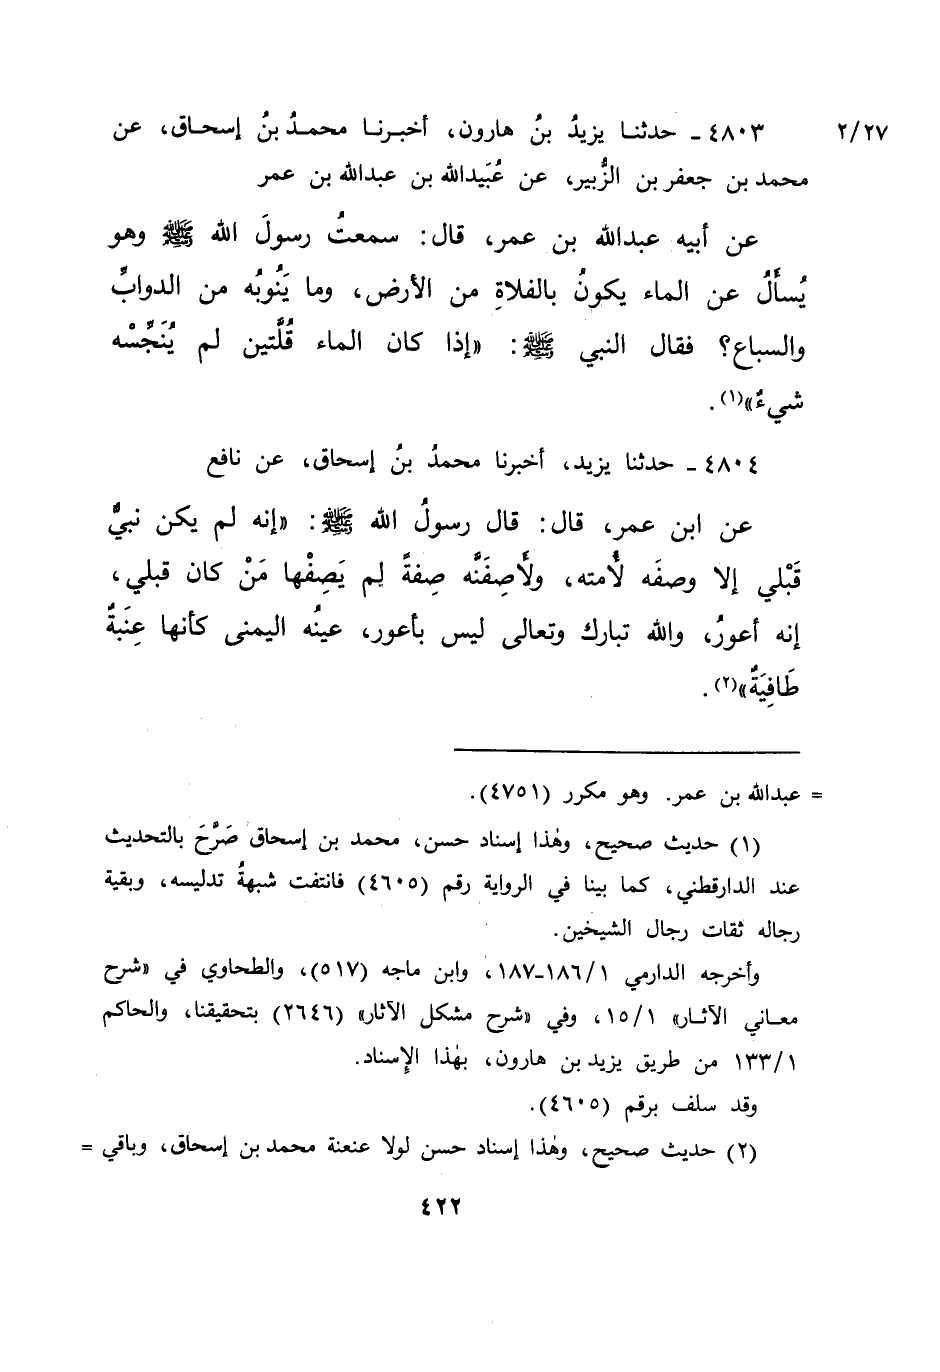 ٢/٢٧ ٤٨٠٣ ـ حدثنـا يزيدُ بنُ هارون، أخبـرنـا محمـدُ بنُ إسحـاق، عن
محمد بن جعفر بن الزُّبير، عن عُبَيدالله بن عبدالله بن عمر
عن أبيه عبدالله بن عمر، قال: سمعتُ رسولَ الله ﷺ وهو
يُسأَلُ عن الماء يكونُ بالفلاةِ من الأرض، وما يَنُوبُه من الدوابِّ
والسباع؟ فقال النبي ﷺ: «إذا كان الماء قُلَّتين لم يُنَجِّسْه
شيءٌ»(١).
٤٨٠٤ ـ حدثنا يزيد، أخبرنا محمدُ بنُ إسحاق، عن نافع
عن ابن عمر، قال: قال رسولُ الله ﷺ: «إنه لم يكن نبيٌّ
قَبْلي إلا وصفَه لأُمته، ولأَصِفَنَّه صِفةً لم يَصِفْها مَنْ كان قبلي،
إنه أعورُ، والله تبارك وتعالى ليس بأعور، عينُه اليمنى كأنها عِنَبةٌ
طَافِيَةٌ»(٢).
= عبدالله بن عمر. وهو مكرر (٤٧٥١).
(١) حديث صحيح، وهٰذا إسناد حسن، محمد بن إسحاق صَرَّحَ بالتحديث
عند الدارقطني، كما بينا في الرواية رقم (٤٦٠٥) فانتفت شبهةُ تدليسه، وبقية
رجاله ثقات رجال الشيخين.
وأخرجه الدارمي ١/١٨٦-١٨٧، وابن ماجه (٥١٧)، والطحاوي في «شرح
معـاني الآثـار» ١/١٥، وفي «شرح مشكل الآثار» (٢٦٤٦) بتحقيقنا، والحاكم
١/١٣٣ من طريق يزيد بن هارون، بهٰذا الإسناد.
وقد سلف برقم (٤٦٠٥).
(٢) حديث صحيح، وهٰذا إسناد حسن لولا عنعنة محمد بن إسحاق، وباقي =
٤٢٢